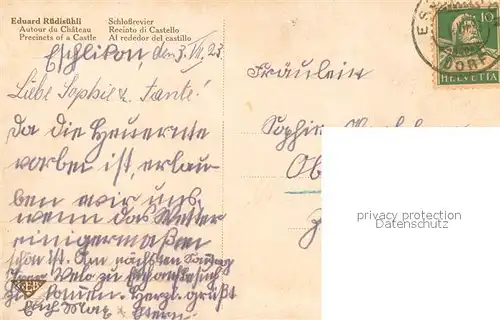 Eduard Rüdisühli
Autour du Château
Precincts of a Castle
Schloßrevier
Recinto di Castello
Al rededor del castillo
Eschlikon den 3. VII. 23
Liebe Sophie u. Tante!
Da die Heuernte
vorbei ist, erlau-
ben wir uns,
wenn das Wetter
einigermaßen
schön ist. Am nächsten Sontag
per Velo zu
zu kommen. Herzl. grüßt
Euch Max
Fräulein
Sophie
Ob
10
HELVETIA
DORF
privacy protection
www.oldthing.de